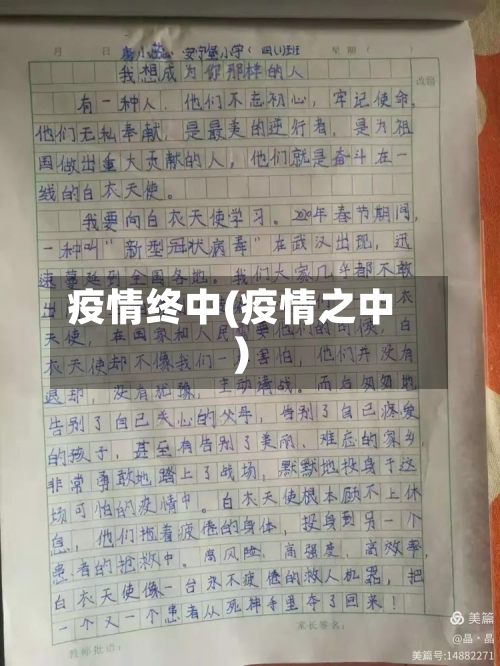 月 日 安宁堡小学 四(1)班 星期( )
我想成为你那样的人
改错
有一种人，他们不忘初心，牢记使命，
他们无私奉献，是最美的逆行者，是为祖
国做出重大贡献的人，他们就是奋斗在一
线的白衣天使。
我要向白衣天使学习。2020年春节期间，
一种叫"新型冠状病毒"在武汉出现，迅
速蔓延到全国各地。我们大家几乎都不敢
出
疫情终中(疫情之中
)
天使，在国家和人民需要他们的时候，白衣
天使却不像我们一 害怕，他们并没有
退却，没有犹豫，主动请战。而后匆匆地
告别了自己关心的父母，告别了自己疼爱
的孩子，甚至有告别了美丽、难忘的家乡，
非常勇敢地踏上了战场，默默地投身于这
场可怕的疫情中。白衣天使根本顾不上休
息，他们拖着疲惫的身体，投身到另一个
患者的抢救中。高风险，高强度，高效率，
白衣天使像一台永不疲惫的救人机器，把
一个又一个患者从死神手里夺了回来！
教师批语： 家长签名：
美篇
@晶·晶
美篇号:14882271